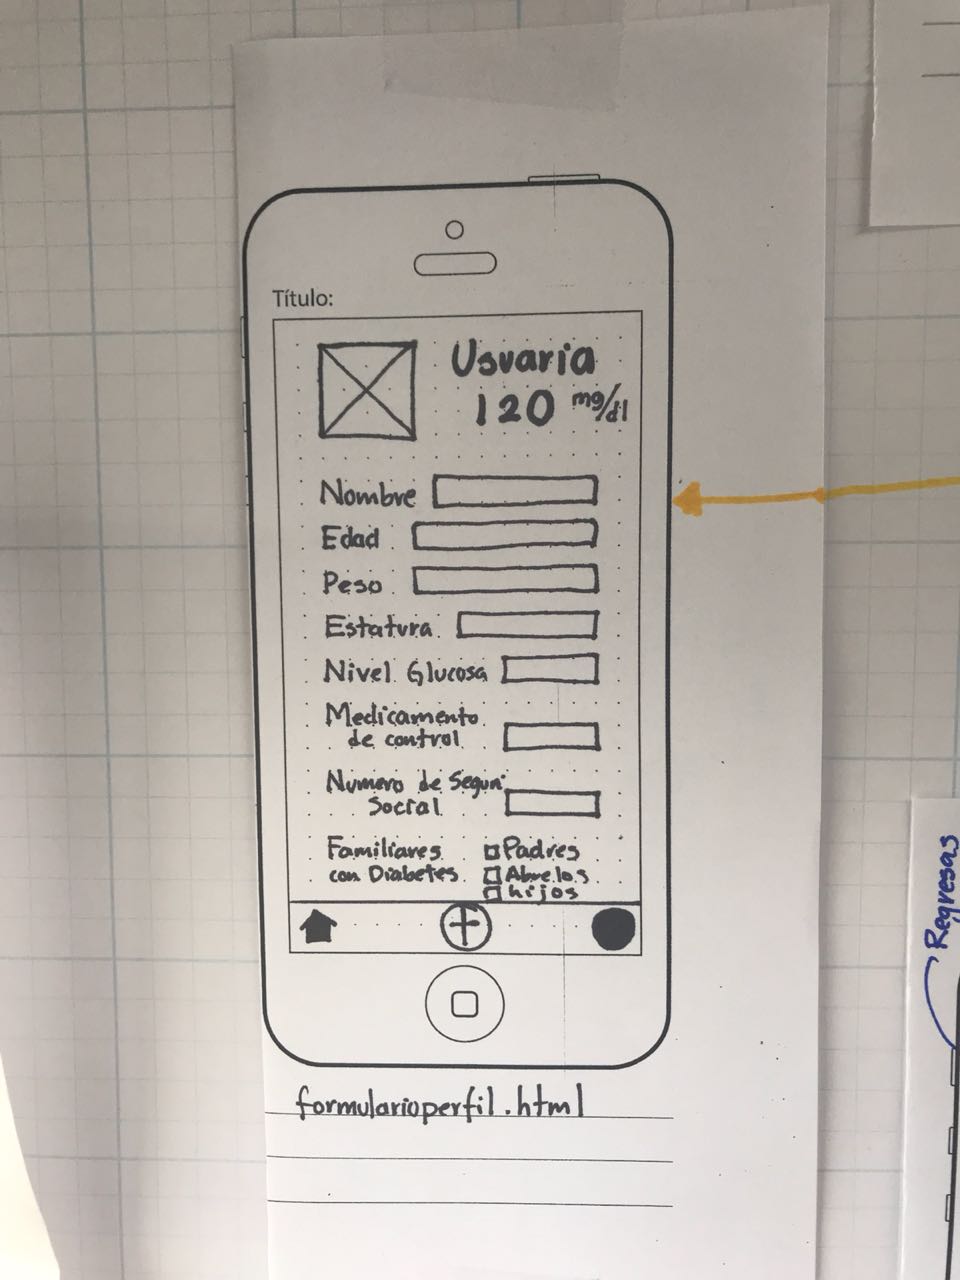 Título:
Usuaria
120 mg/dl
Nombre
Edad
Peso
Estatura
Nivel Glucosa
Medicamento
de control
Numero de Seguri
Social
Familiares
con Diabetes
Padres
Abuelos
hijos
formularioperfil.html
Regresas